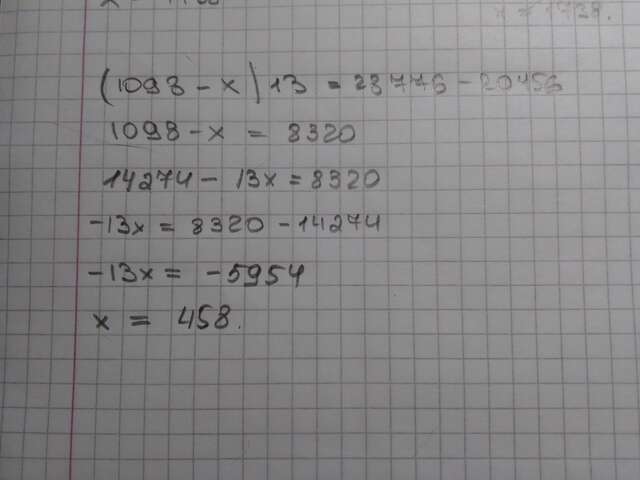 x = 1728.
(1098 - x) 13 = 28776 - 20456
1098 - x = 8320
14274 - 13x = 8320
-13x = 8320 - 14274
-13x = -5954
x = 458.